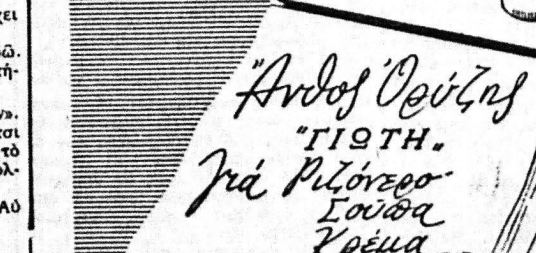 χει
ῶ.
τή-
ν».
τσι
τὸ
ολ-
Αὐ
Ἄνθος Ὀρύζης
"ΓΙΩΤΗ„
Γιά Ριζόνερο
Σούπα
Κρέμα